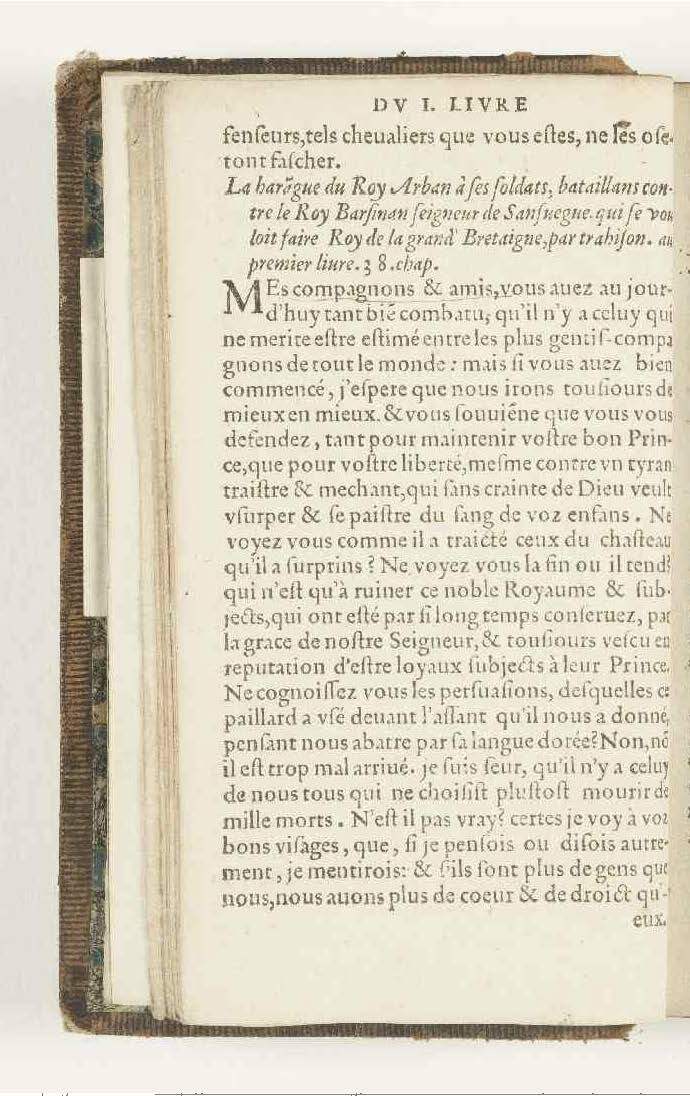 DV I. LIVRE
fenſeurs,tels cheualiers que vous eſtes, ne les oſe-
ront faſcher.
La harāgue du Roy Arban à ſes ſoldats, bataillans con-
tre le Roy Barſinan ſeigneur de Sanſuegue. qui ſe vou
loit faire Roy de la grand' Bretaigne,par trahiſon. au
premier liure. 3 8 .chap.
MEs compagnons & amis,vous auez au jour-
d'huy tant biē combatu, qu'il n'y a celuy qui
ne merite eſtre eſtimé entre les plus gentiſ-compa
gnons de tout le monde : mais ſi vous auez bien
commencé, j'eſpere que nous irons touſiours de
mieux en mieux. & vous ſouuiēne que vous vous
defendez , tant pour maintenir voſtre bon Prin-
ce,que pour voſtre liberté,meſme contre vn tyran
traiſtre & mechant,qui ſans crainte de Dieu veult
vſurper & ſe paiſtre du ſang de voz enfans . Ne
voyez vous comme il a traicté ceux du chaſteau
qu'il a ſurprins ? Ne voyez vous la fin ou il tend?
qui n'eſt qu'à ruiner ce noble Royaume & ſub-
jects,qui ont eſté par ſi long temps conſeruez, par
la grace de noſtre Seigneur,& touſiours veſcu en
reputation d'eſtre loyaux ſubjects à leur Prince.
Ne cognoiſſez vous les perſuaſions, deſquelles ce
paillard a vſé deuant l'aſſaut qu'il nous a donné,
penſant nous abatre par ſa langue dorée? Non,nō
il eſt trop mal arriué. je ſuis ſeur, qu'il n'y a celuy
de nous tous qui ne choiſiſt pluſtoſt mourir de
mille morts . N'eſt il pas vray? certes je voy à voz
bons viſages , que , ſi je penſois ou diſois autre-
ment , je mentirois: & ſ'ils ſont plus de gens que
nous,nous auons plus de coeur & de droict qu'-
eux.